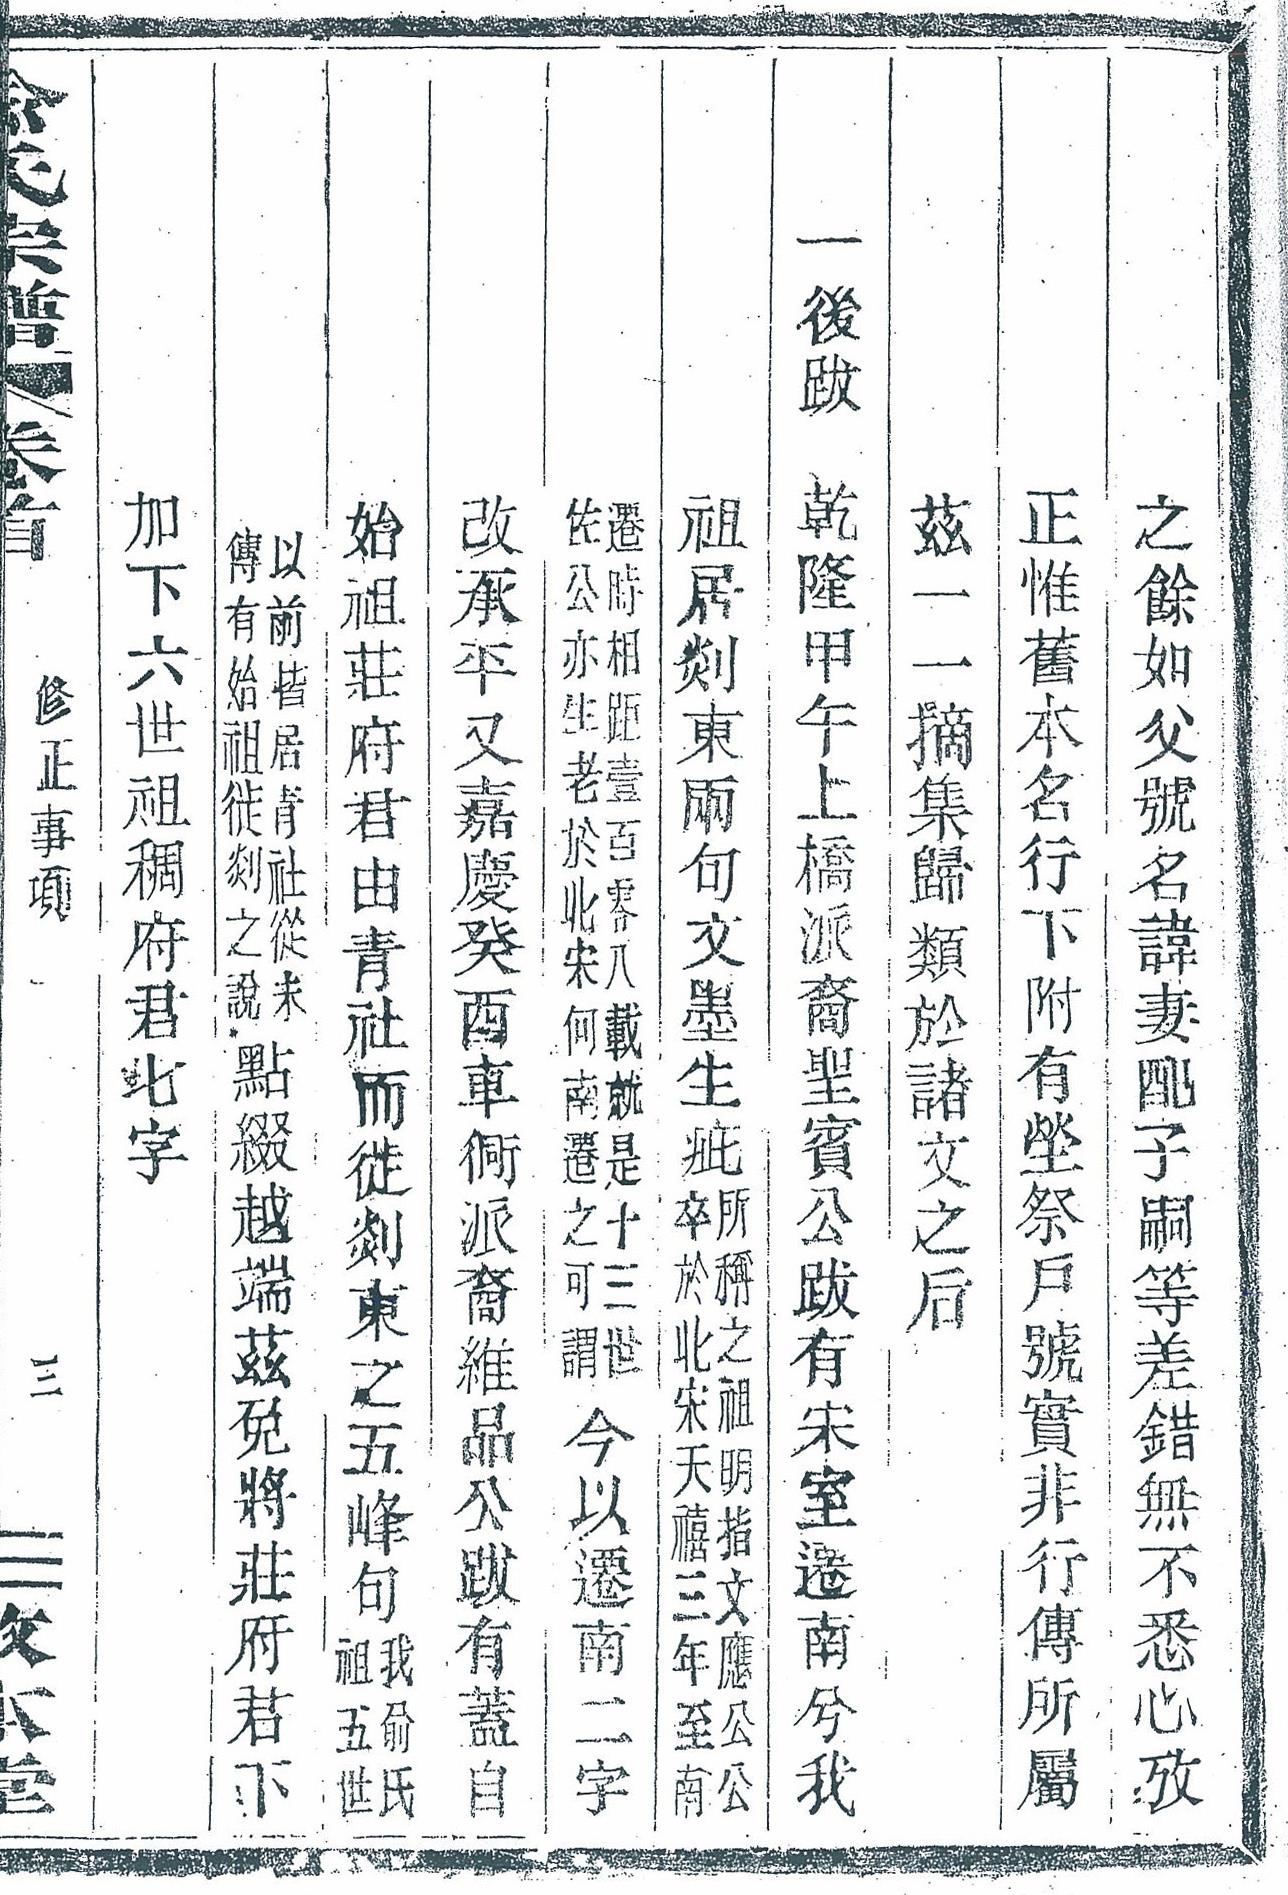 之餘如父號名諱妻配子嗣等差錯無不悉心攷
正惟舊本名行下附有塋祭戶號實非行傳所屬
茲一一摘集歸類於諸文之后
一後跋 乾隆甲午上橋派裔聖賓公跋有宋室遷南兮我
祖居剡東兩句文墨生疵所稱之祖明指文應公公卒於北宋天禧三年至南
遷時相距壹百零八載就是十三世佐公亦生老於北宋何南遷之可謂今以遷南二字
改承平又嘉慶癸酉車衕派裔維品公跋有蓋自
始祖莊府君由青社而徙剡東之五峰句我俞氏祖五世
以前皆居青社從未傳有始祖徙剡之說點綴越端茲免將莊府君下
加下六世祖稠府君北字
俞氏宗譜 卷首 修正事項 三 敦本堂